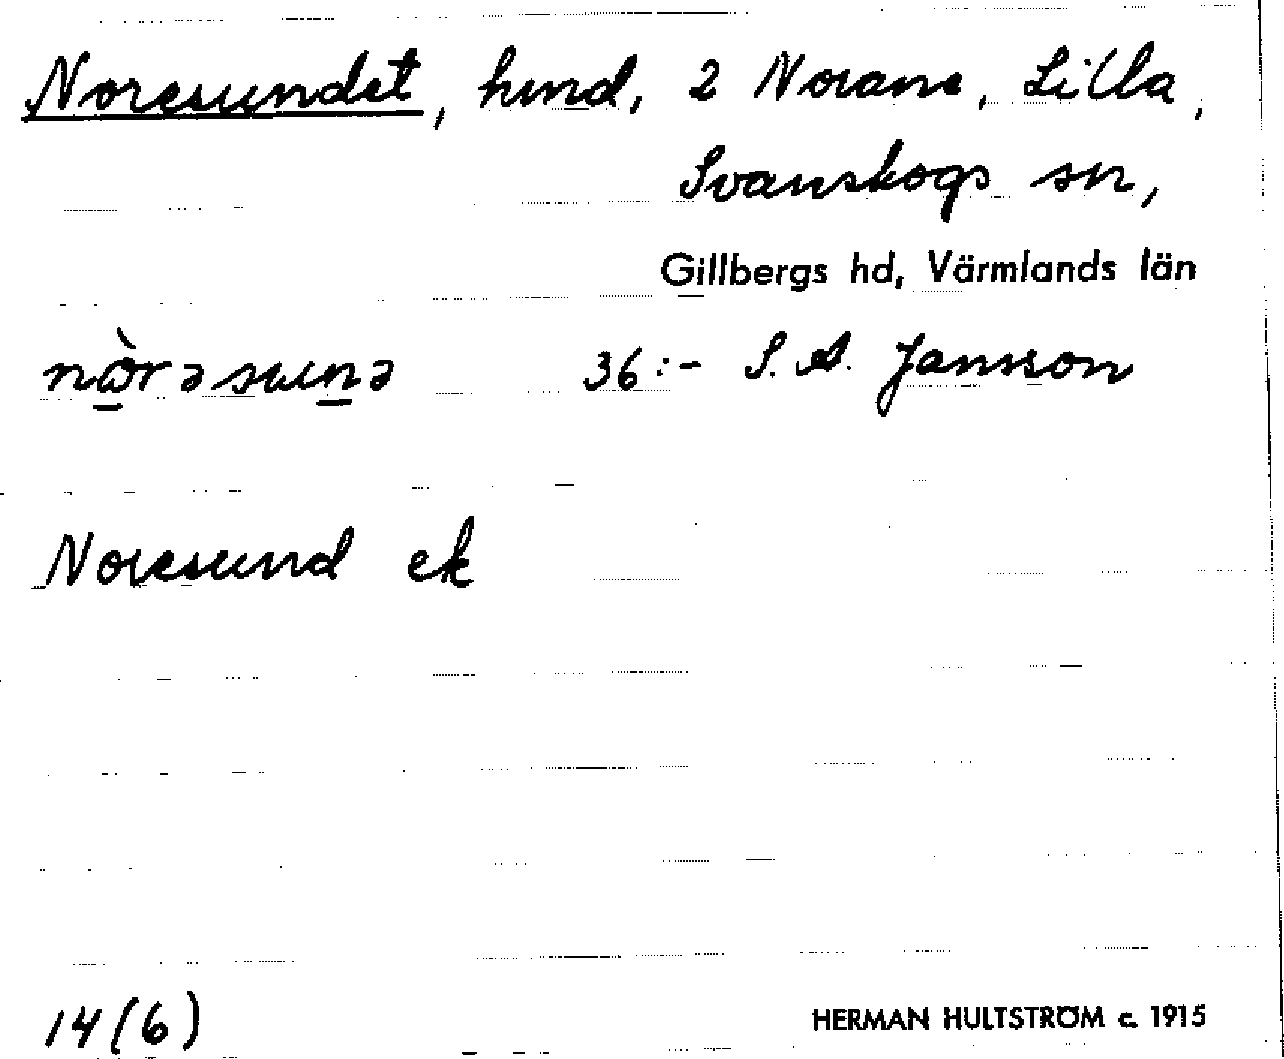 Noresundet, hmd, 2 Norane, Lilla,
Svanskogs sn,
Gillbergs hd, Värmlands län
36:- S. A. Jansson
Noresund ek
14(6)
HERMAN HULTSTRÖM c. 1915